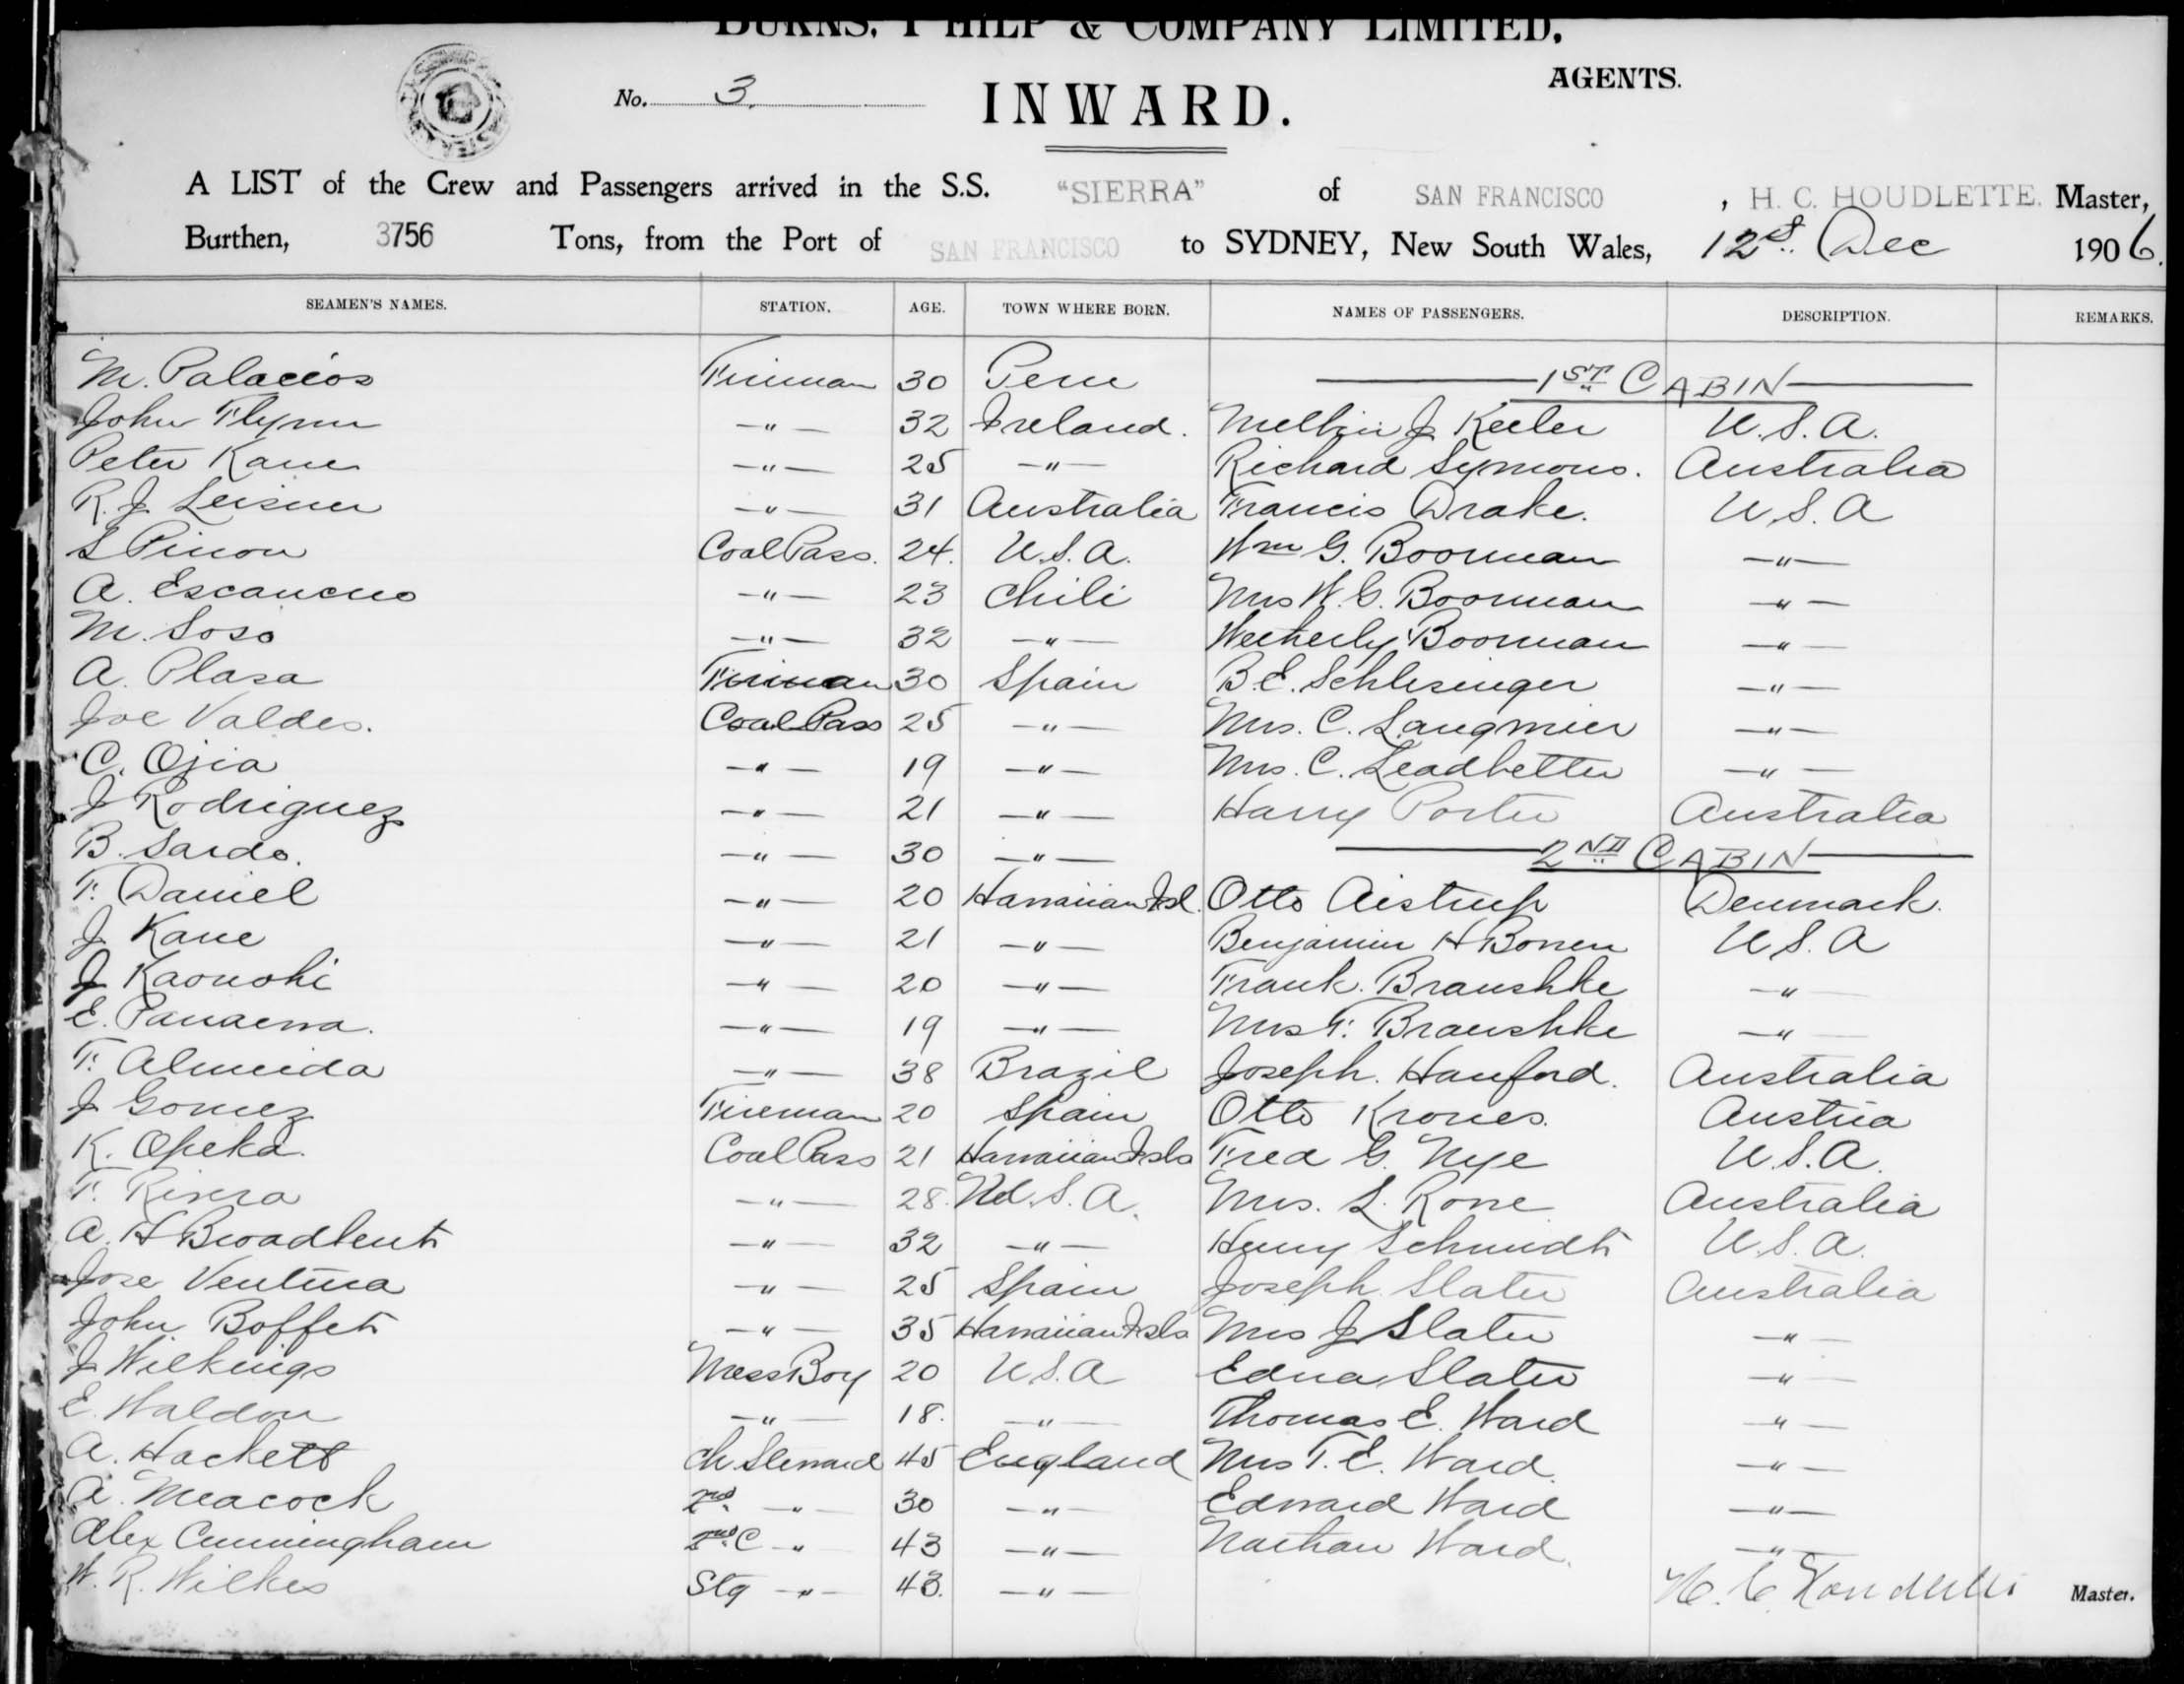 BURNS, PHILP & COMPANY LIMITED,
AGENTS.
No. 3.
INWARD.
A LIST of the Crew and Passengers arrived in the S.S. "SIERRA" of SAN FRANCISCO, H. C. HOUDLETTE. Master,
Burthen, 3756 Tons, from the Port of SAN FRANCISCO to SYDNEY, New South Wales, 12th Dec 1906.
SEAMEN'S NAMES. STATION. AGE. TOWN WHERE BORN. NAMES OF PASSENGERS. DESCRIPTION. REMARKS.
M. Palacios Fireman 30 Peru 1ST CABIN
John Flynn -"- 32 Ireland. J Keeler U.S.A.
Peter Kane -"- 25 -"- Richard Symons. Australia
R. J. Leisner -"- 31 Australia Francis Drake. U.S.A
S Pinon Coal Pass. 24. U.S.A. Wm G. Boorman -"-
A. Escancno -"- 23 Chili Mrs W. G. Boorman -"-
M. Soso -"- 32 -"- Wetherly Boorman -"-
A. Plasa Fireman 30 Spain B. E. Schlesinger -"-
Joe Valdes. Coal Pass 25 -"- Mrs. C. Langmier -"-
C. Ojia -"- 19 -"- Mrs. C. Leadbetter -"-
J Rodriguez -"- 21 -"- Harry Porter Australia
B. Sardo. -"- 30 -"- 2ND CABIN
F. Daniel -"- 20 Hawaiian Isl. Otto Aistrup Denmark.
J Kane -"- 21 -"- Benjamin H Bowen U.S.A
J Kaonohi -"- 20 -"- Frank. Braushke -"-
E. Panaewa. -"- 19 -"- Mrs F. Braushke -"-
F. Almeida -"- 38 Brazil Joseph. Hanford. Australia
J Gomez Fireman 20 Spain Otto Krones. Austria
K. Opeka. Coal Pass 21 Hawaiian Isls Fred G. Nye U.S.A.
F. Rivera -"- 28. U.S.A. Mrs. L. Rowe Australia
A. H Broadbent -"- 32 -"- Henry Schmidt U.S.A.
Jose Ventura -"- 25 Spain Joseph Slater Australia
John Boffet -"- 35 Hawaiian Isls Mrs J Slater -"-
J Wilkings Mess Boy 20 U.S.A Edna Slater -"-
E. Waldon -"- 18. -"- Thomas E. Ward -"-
A. Hackett Ch Steward 45 England Mrs T. E. Ward. -"-
A. Meacock 2nd. -"- 30 -"- Edward Ward -"-
Alex Cunningham 2nd. C -"- 43 -"- Nathan Ward. -"-
W. R. Wilkes Stg -"- 43. -"- H. C. Houdlette Master.